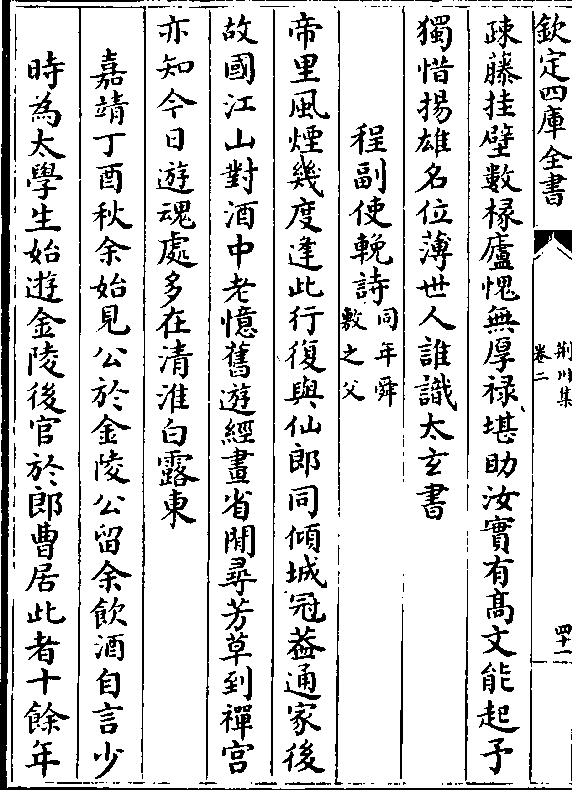 欽定四庫全書
荆川集
卷二
四十一
疎藤挂壁數椽廬愧無厚祿堪助汝實有髙文能起予
獨惜揚雄名位薄世人誰識太玄書
程副使輓詩同年舜
敷之父
帝里風煙幾度逢此行復與仙郎同傾城冠葢通家後
故國江山對酒中老憶舊遊經畫省閒尋芳草到禪宫
亦知今日遊魂處多在清淮白露東
嘉靖丁酉秋余始見公於金陵公留余飲酒自言少
時為太學生始遊金陵後官於郎曹居此者十餘年